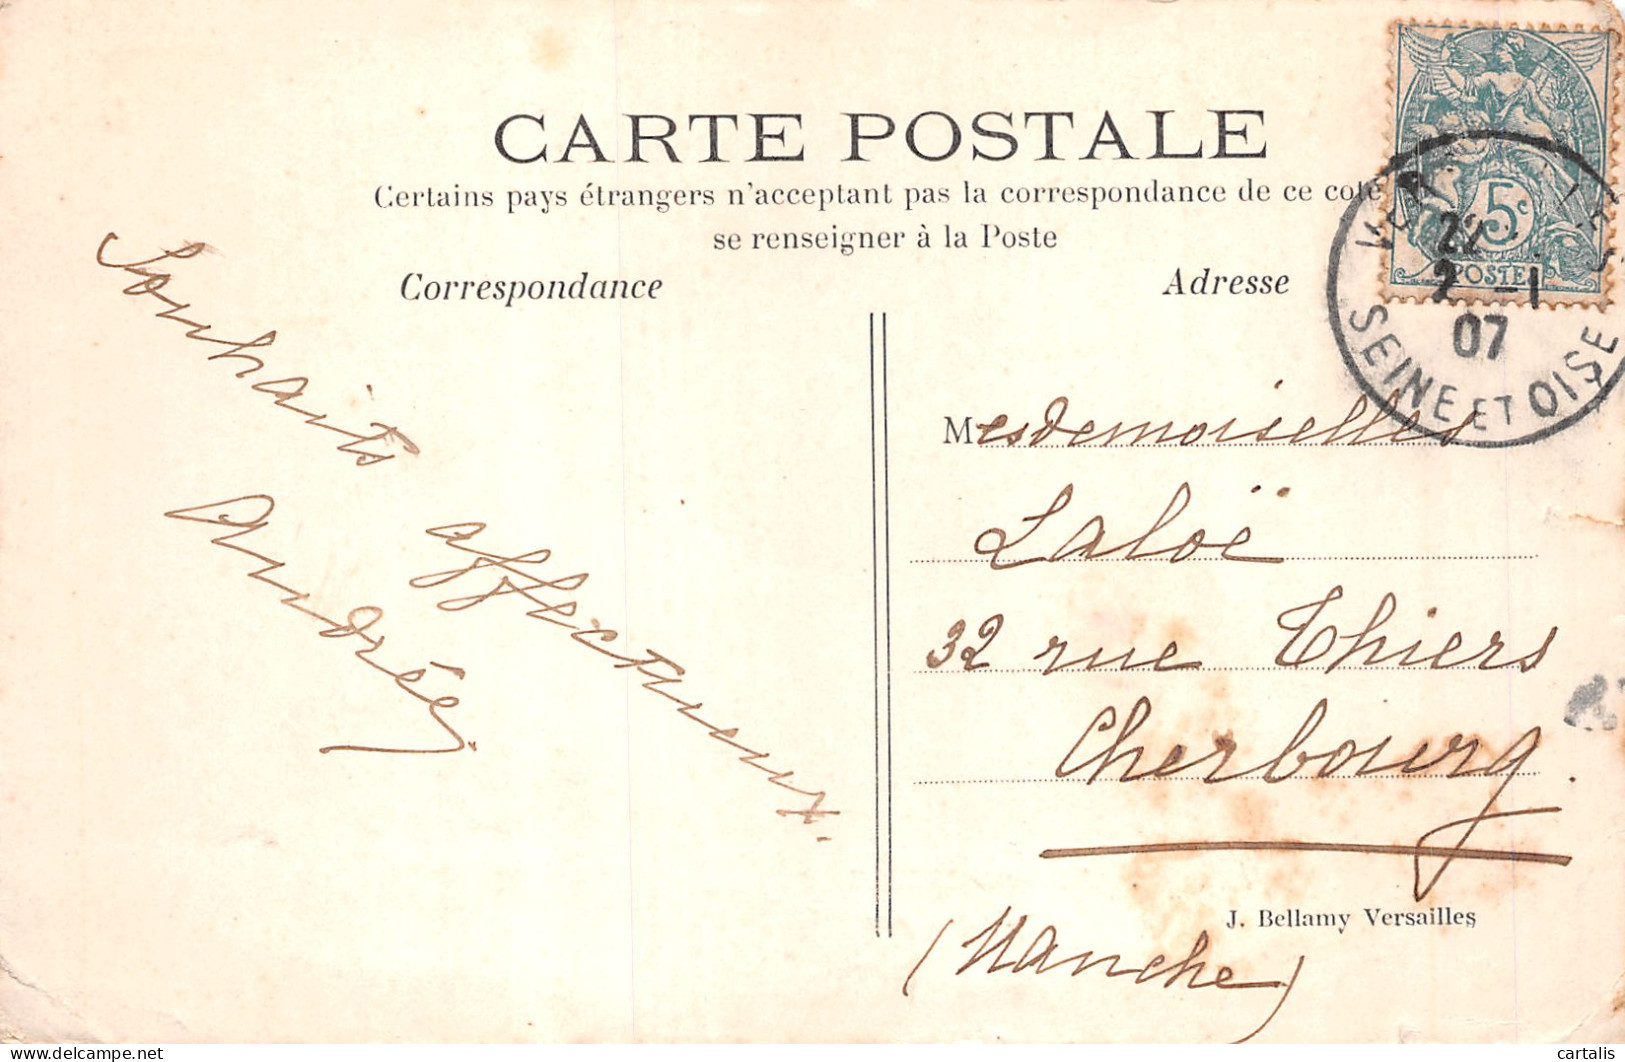 CARTE POSTALE
Certains pays étrangers n'acceptant pas la correspondance de ce coté
se renseigner à la Poste
Correspondance
Adresse
Souhaits affectueux.
Andrée
Mesdemoiselles
Laloë
32 rue Thiers
Cherbourg.
(Manche)
J. Bellamy Versailles
5c
POSTE
22
2 -1
07
SEINE ET OISE
delcampe.net
cartalis